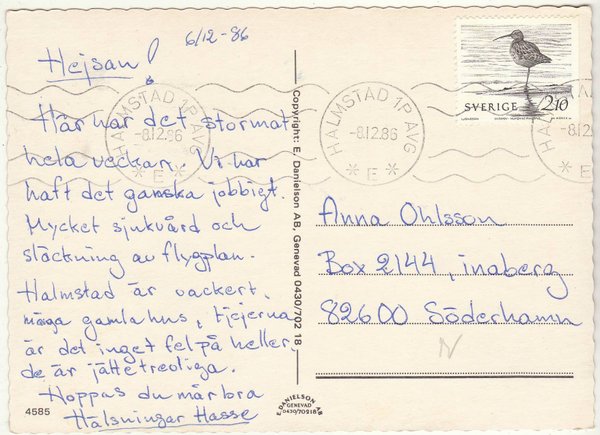 6/12-86
Hejsan!
Här har det stormat
hela veckan. Vi har
haft det ganska jobbigt.
Mycket sjukvård och
släckning av flygplan.
Halmstad är vackert,
många gamla hus, tjejerna
är det inget fel på heller,
de är jättetrevliga.
Hoppas du mår bra
Hälsningar Hasse
4585
Copyright: E. Danielson AB, Genevad 0430/702 18
E. DANIELSON AB
GENEVAD
0430/70218
HALMSTAD 1P AVG
-8.12.86
* E *
HALMSTAD 1P AVG
-8.12.86
* E *
HALMSTAD
-8.12
* E
SVERIGE 2.10
Anna Ohlsson
Box 2144, inaberg
82600 Söderhamn
N